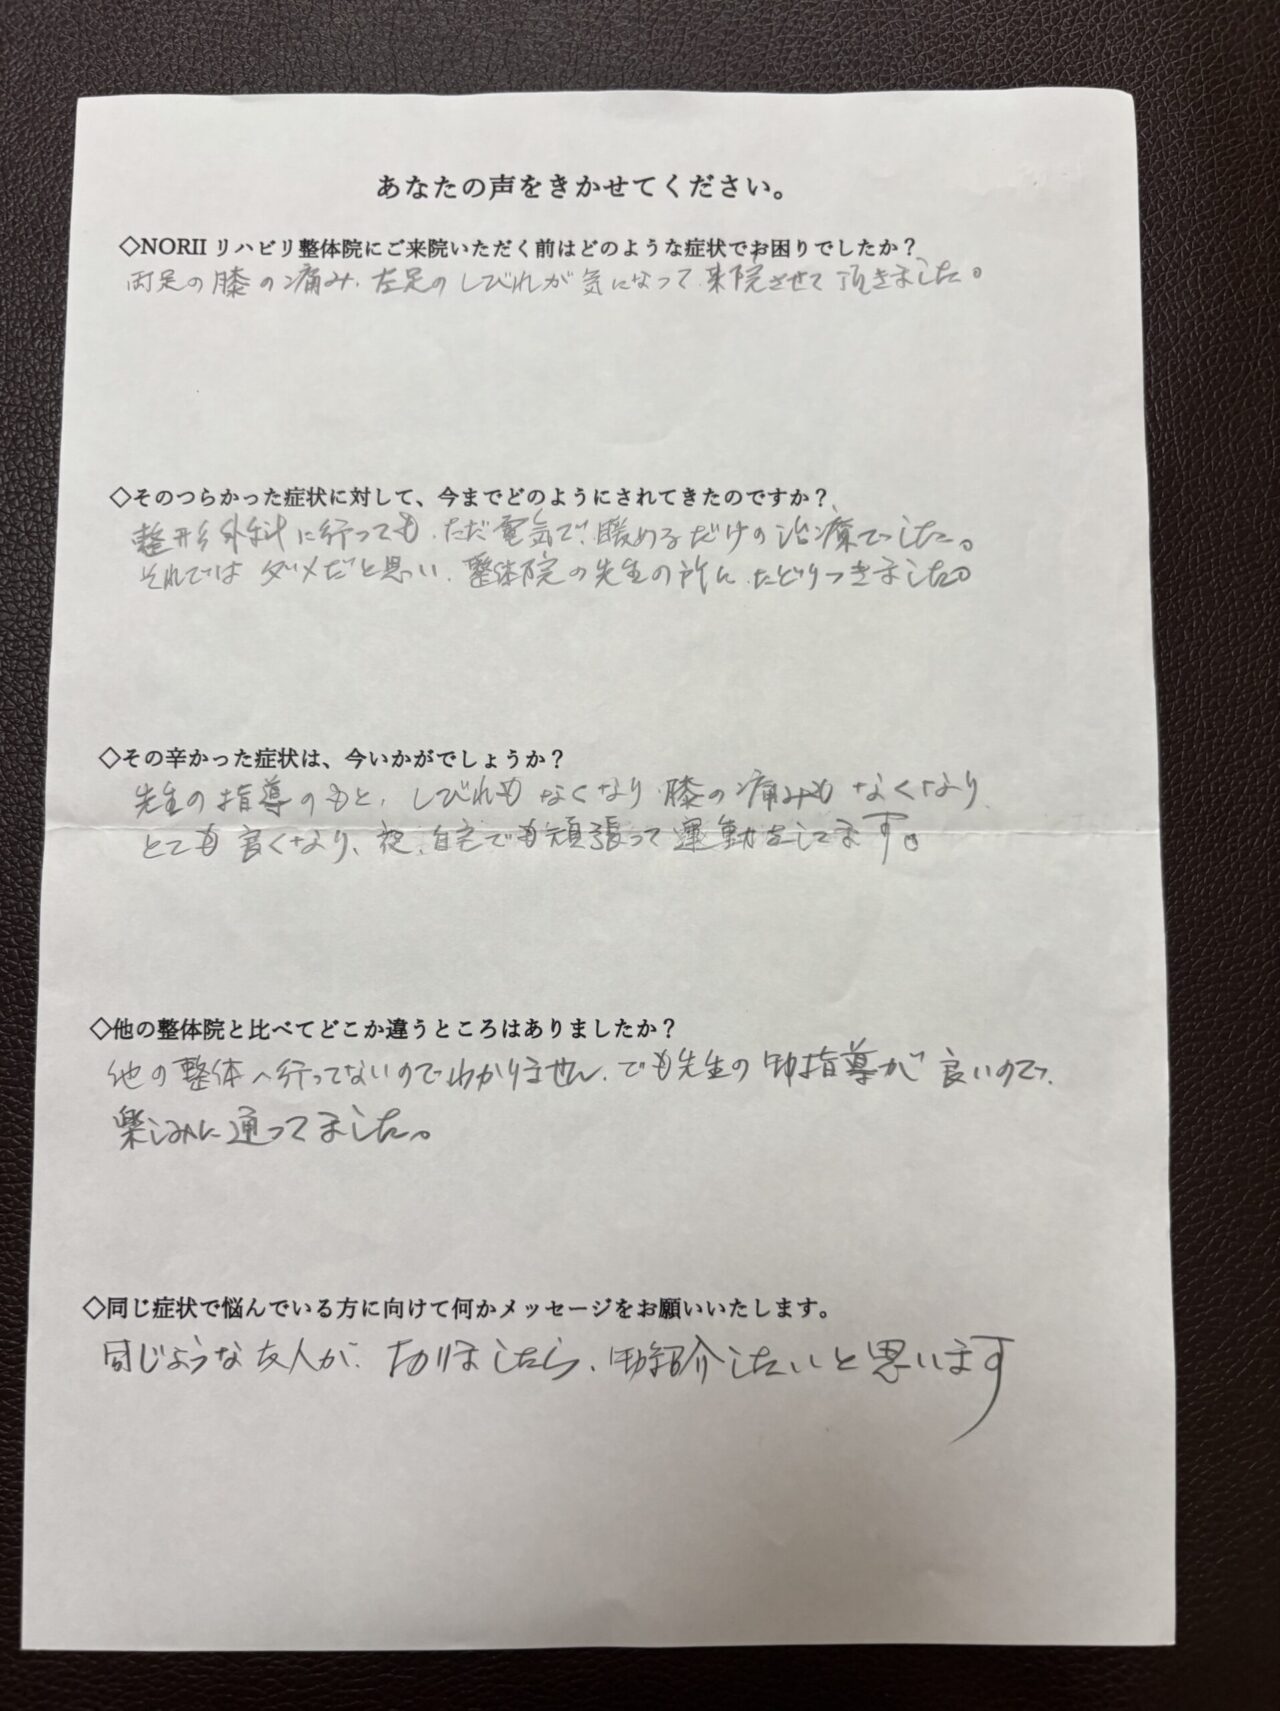 あなたの声をきかせてください。
◇NORII リハビリ整体院にご来院いただく前はどのような症状でお困りでしたか？
両足の膝の痛み、左足のしびれが気になって来院させて頂きました。
◇そのつらかった症状に対して、今までどのようにされてきたのですか？
整形外科に行っても、ただ電気で、暖めるだけの治療でした。
それではダメだと思い、整体院の先生の所に、たどりつきました。
◇その辛かった症状は、今いかがでしょうか？
先生の指導のもと、しびれもなくなり、膝の痛みもなくなり、
とても良くなり、夜、自宅でも頑張って運動をしてます。
◇他の整体院と比べてどこか違うところはありましたか？
他の整体へ行ってないのでわかりません、でも先生の御指導が良いので、
楽しみに通ってました。
◇同じ症状で悩んでいる方に向けて何かメッセージをお願いいたします。
同じような友人が、おりましたら、御紹介したいと思います